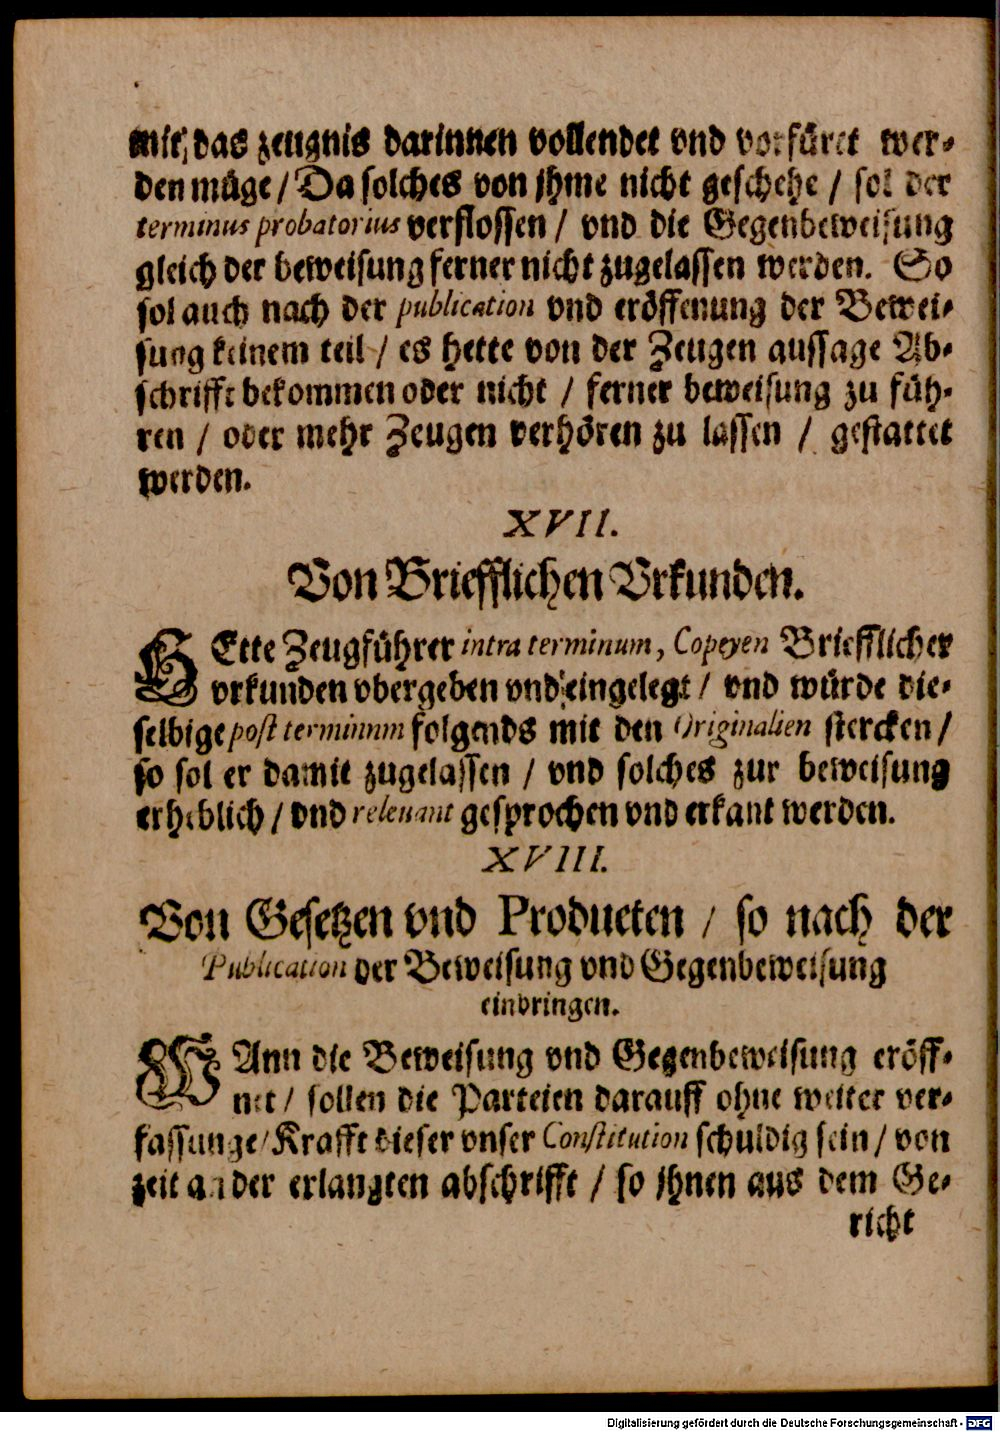 mit, das zeugnis darinnen vollendet vnd vorfüret wer-
den müge / Da solches von jhme nicht geschehe / sol der
terminus probatorius verflossen / vnd die Gegenbeweisung
gleich der beweisung ferner nicht zugelassen werden. So
sol auch nach der publication vnd eröffenung der Bewei-
sung keinem teil / es hette von der Zeugen aussage Ab-
schrifft bekommen oder nicht / ferner beweisung zu füh-
ren / oder mehr Zeugen verhören zu lassen / gestattet
werden.
XVII.
Von Briefflichen Vrkunden.
HEtte Zeugführer intra terminum, Copeyen Briefflicher
vrkunden vbergeben vnd eingelegt / vnd würde die-
selbige post terminum folgends mit den Originalien stercken /
so sol er damit zugelassen / vnd solches zur beweisung
erheblich / vnd releuant gesprochen vnd erkant werden.
XVIII.
Von Gesetzen vnd Producten / so nach der
Publication der Beweisung vnd Gegenbeweisung
einbringen.
WAnn die Beweisung vnd Gegenbeweisung eröff-
net / sollen die Parteien darauff ohne weiter ver-
fassunge / Krafft dieser vnser Constitution schuldig sein / von
zeit an der erlangten abschrifft / so jhnen aus dem Ge-
richt
Digitalisierung gefördert durch die Deutsche Forschungsgemeinschaft - DFG